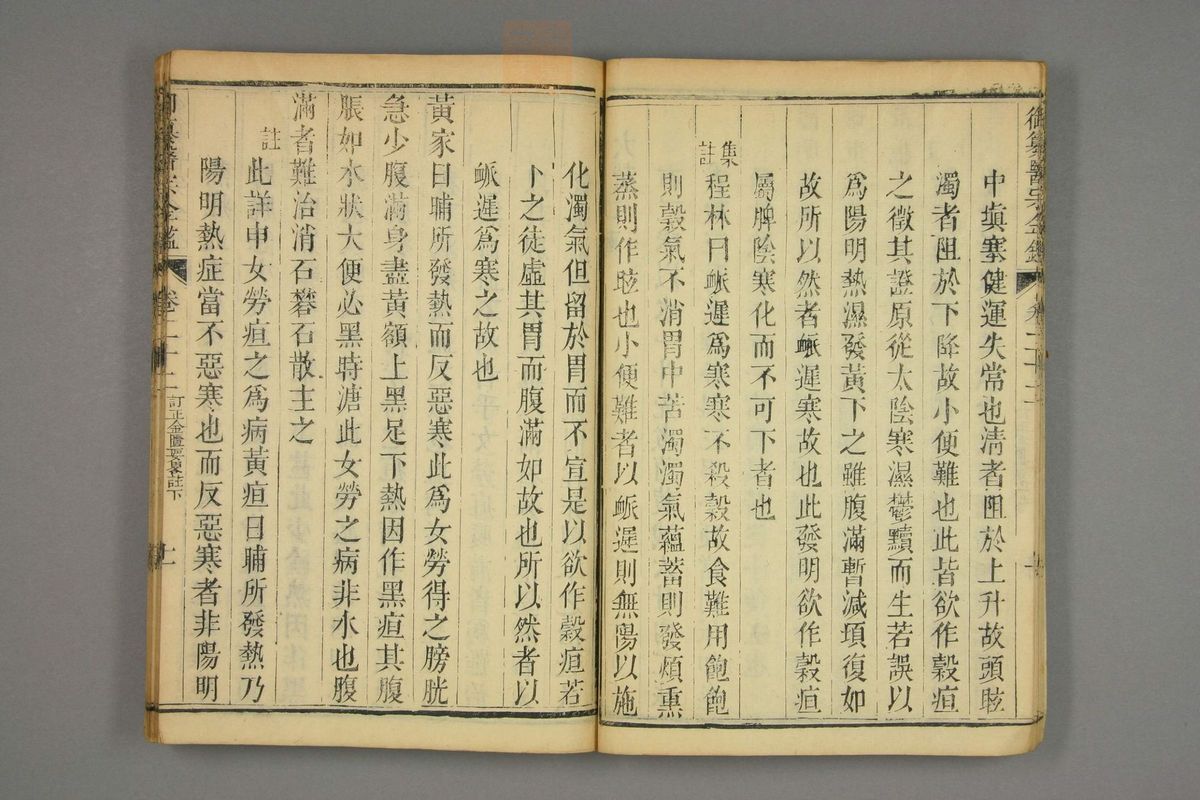 御纂醫宗金鑑 卷二十二
中塡塞健運失常也清者阻於上升故頭眩
濁者阻於下降故小便難也此皆欲作穀疸
之徵其證原從太陰寒濕鬱黷而生若誤以
爲陽明熱濕發黃下之雖腹滿暫減項復如
故所以然者䘑遲寒故也此發明欲作穀疸
屬脾陰寒化而不可下者也
集註 程林曰䘑遲爲寒寒不殺穀故食難用飽飽
則穀氣不消胃中苦濁濁氣蘊蓄則發煩熏
蒸則作眩也小便難者以䘑遲則無陽以施
化濁氣但留於胃而不宣是以欲作穀疸若
下之徒虛其胃而腹滿如故也所以然者以
䘑遲爲寒之故也
黃家日晡所發熱而反惡寒此爲女勞得之膀胱
急少腹滿身盡黃額上黑足下熱因作黑疸其腹
脹如水狀大便必黑時溏此女勞之病非水也腹
滿者難治消石礬石散主之
註 此詳申女勞疸之爲病黃疸日晡所發熱乃
陽明熱症當不惡寒也而反惡寒者非陽明
御纂醫宗金鑑 卷二十二 訂正金匱要畧註下